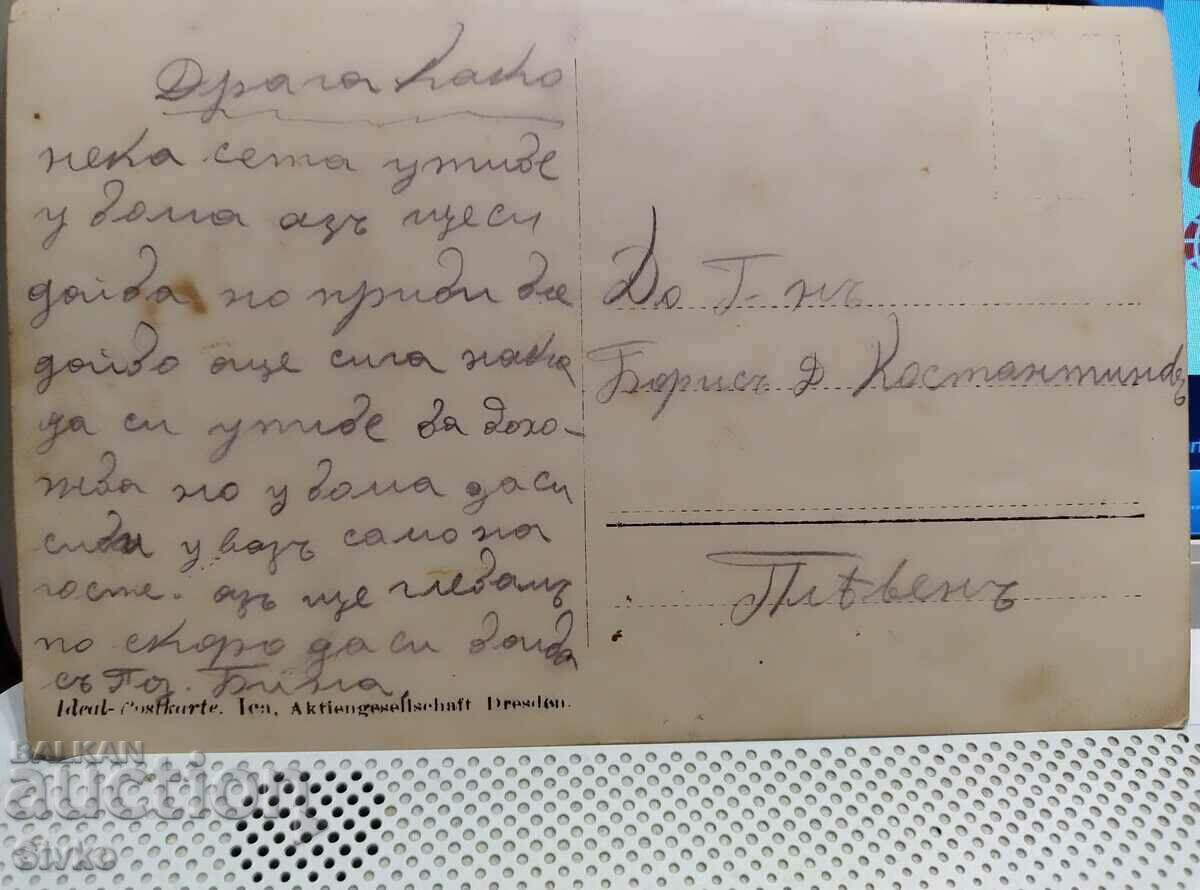 Драга Како
нека сета утиде
у дома азъ щеси
дойда но приди
дойдо още сига нека
да си утиде да дохо-
жда но у дома да си
сиди у вазъ само на
госте. азъ ще гледамъ
по скоро да си дойда
съ Поз. Бина
Ideal-Postkarte. Ica, Aktiengesellschaft Dresden.
До Г-нъ
Борисъ Д Костантиновъ
Плѣвенъ
BALKAN
auction
Sivko